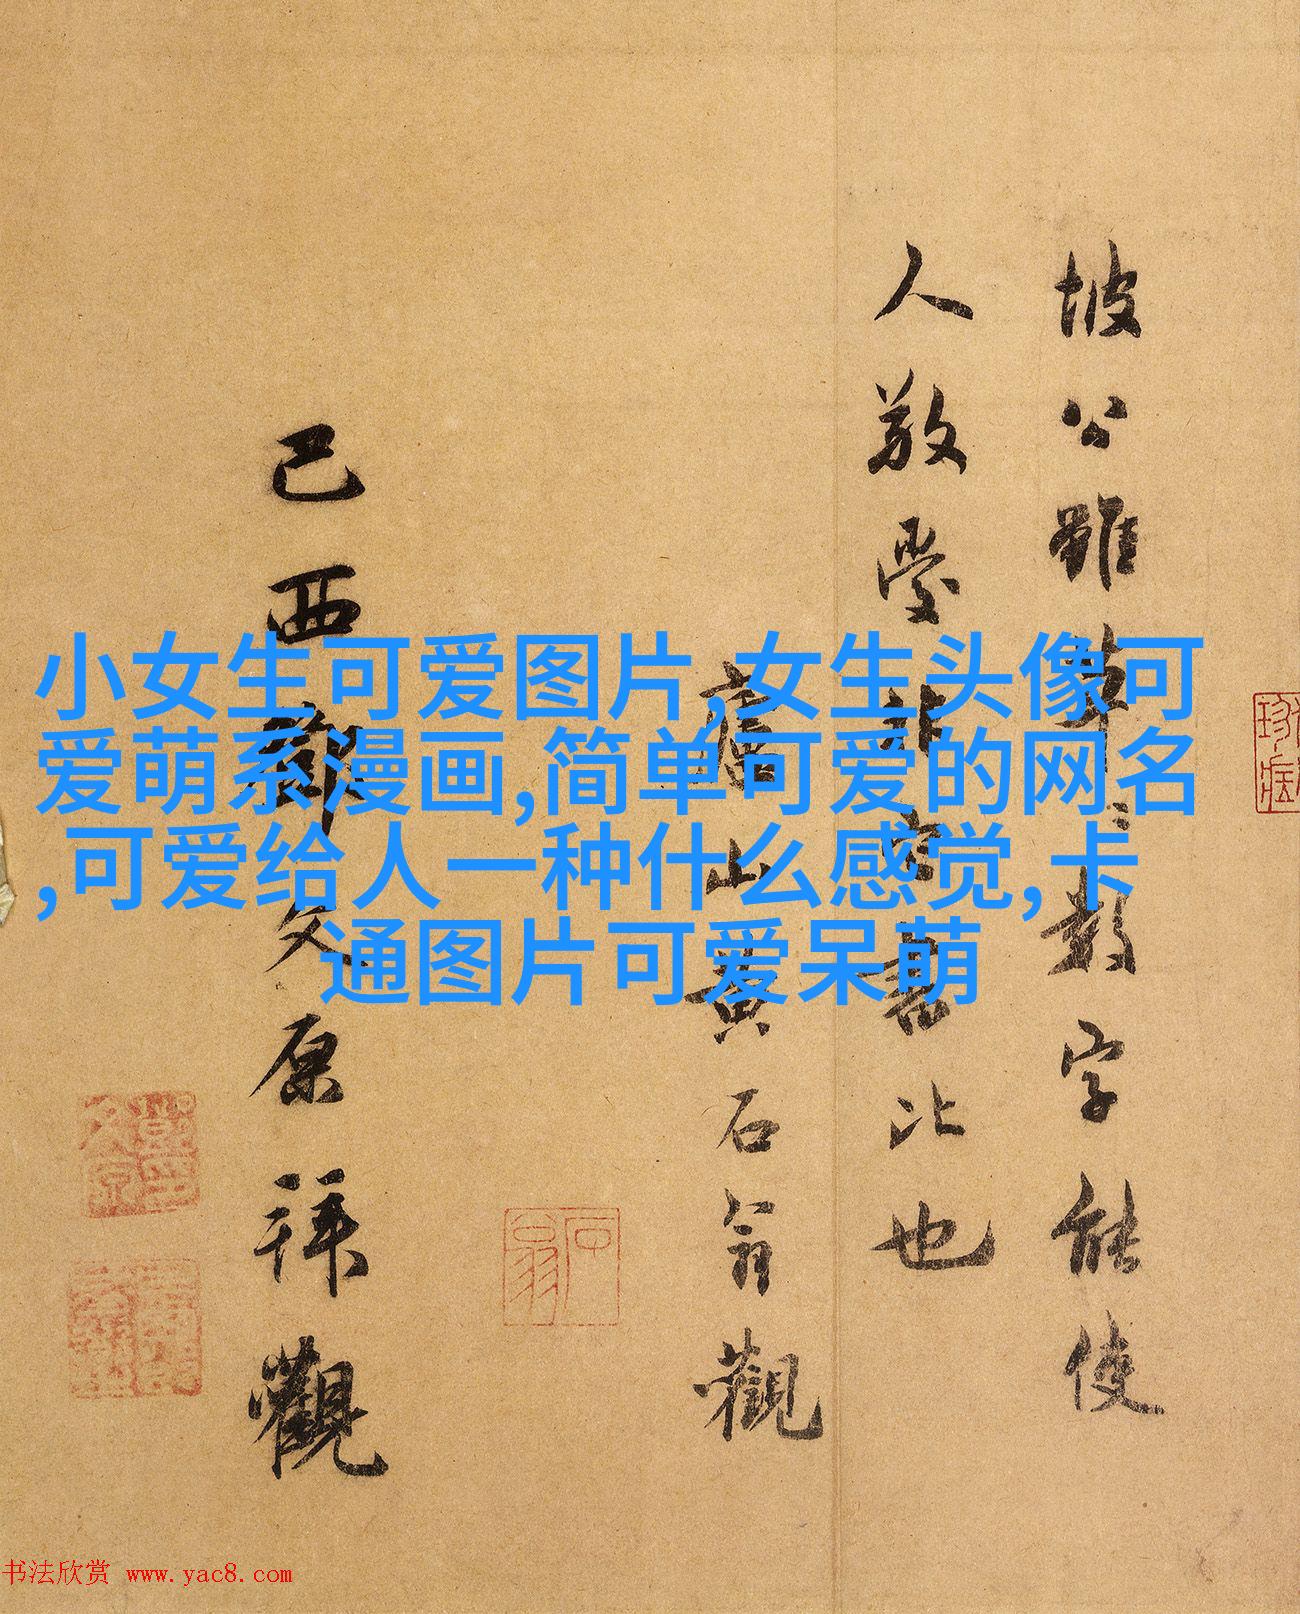 坡公雖草草數字能使
人敬愛非它書比也
舊山黄石翁觀
己酉鄧文原拜觀
石翁
小女生可爱图片,女生头像可
爱萌系漫画,简单可爱的网名
,可爱给人一种什么感觉,卡
通图片可爱呆萌
书法欣赏 www.yac8.com